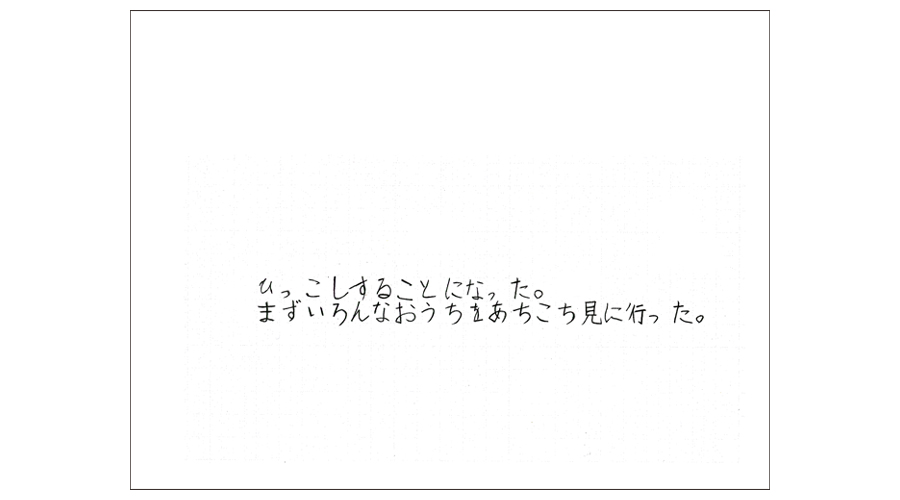 ひっこしすることになった。
まずいろんなおうちをあちこち見に行った。